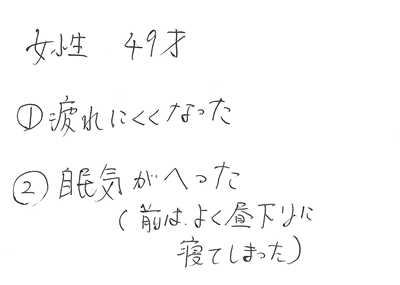 女性 49才
①疲れにくくなった
②眠気がへった
(前は、よく昼下りに
寝てしまった)